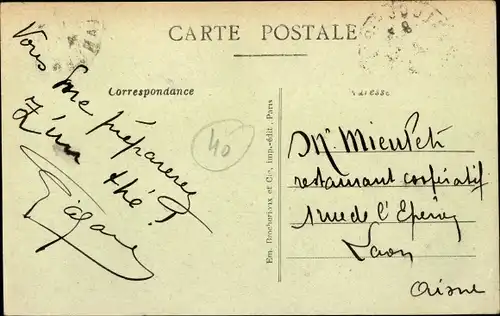 CARTE POSTALE
Correspondance
Adresse
Vous me préparerez
thé !
40
Em. Rocherieux et Cie, imp.-édit., Paris
Mr Mieuset
restaurant coopératif
rue de l'Eperon
Laon
Aisne